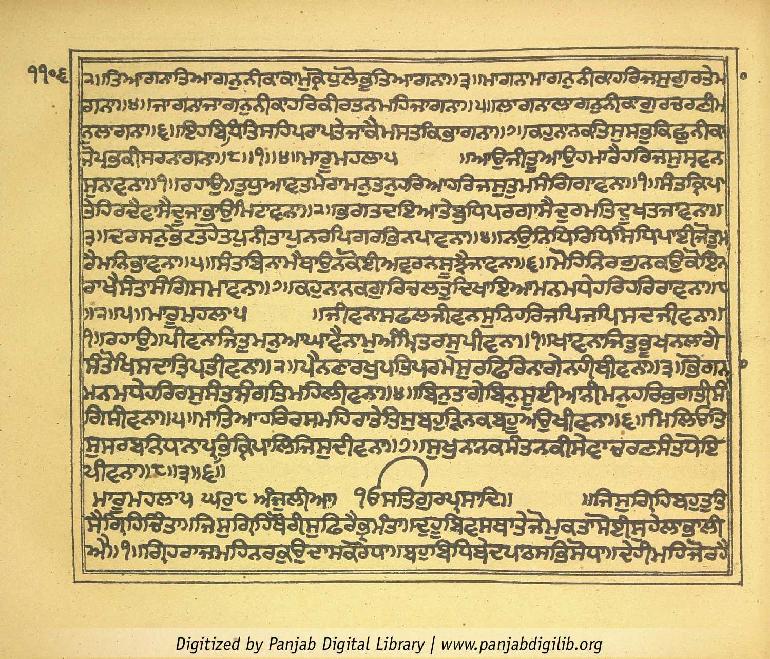 ੨॥ਤਿਆਗਨਾਤਿਆਗਨੁਨੀਕਾਕਾਮੁਕ੍ਰੋਧੁਲੋਭੁਤਿਆਗਨਾ॥੩॥ਮਾਗਨਾਮਾਗਨੁਨੀਕਾਹਰਿਜਸੁਗੁਰਤੇਮਾ
੧੧੦੬
ਗਨਾ॥੪॥ਜਾਗਨਾਜਾਗਨੁਨੀਕਾਹਰਿਕੀਰਤਨਮਹਿਜਾਗਨਾ॥੫॥ਲਾਗਨਾਲਾਗਨੁਨੀਕਾਗੁਰਚਰਣੀਮ
ਨੁਲਾਗਨਾ॥੬॥ਇਹਬਿਧਿਤਿਸਹਿਪਰਾਪਤੇਜਾਕੈਮਸਤਕਿਭਾਗਨਾ॥੭॥ਕਹੁਨਾਨਕਤਿਸੁਸਭੁਕਿਛੁਨੀਕਾ
ਜੋਪ੍ਰਭਕੀਸਰਨਾਗਨਾ॥੮॥੧॥੪॥ਮਾਰੂਮਹਲਾ੫ ॥ਆਉਜੀਤੂਆਉਹਮਾਰੈਹਰਿਜਸੁਸ੍ਰਵਨ
ਸੁਨਾਵਨਾ॥੧॥ਰਹਾਉ॥ਤੁਧੁਆਵਤਮੇਰਾਮਨੁਤਨੁਹਰਿਆਹਰਿਜਸੁਤੁਮਸੰਗਿਗਾਵਨਾ॥੧॥ਸੰਤਕ੍ਰਿਪਾ
ਤੇਹਿਰਦੈਵਾਸੈਦੂਜਾਭਾਉਮਿਟਾਵਨਾ॥੨॥ਭਗਤਦਇਆਤੇਬੁਧਿਪਰਗਾਸੈਦੁਰਮਤਿਦੂਖਤਜਾਵਨਾ॥
੩॥ਦਰਸਨੁਭੇਟਤਹੋਤਪੁਨੀਤਾਪੁਨਰਪਿਗਰਭਿਨਪਾਵਨਾ॥੪॥ਨਉਨਿਧਿਰਿਧਿਸਿਧਿਪਾਈਜੋਤੁਮ
ਰੈਮਨਿਭਾਵਨਾ॥੫॥ਸੰਤਬਿਨਾਮੈਥਾਉਨਕੋਈਅਵਰਨਸੂਝੈਜਾਵਨਾ॥੬॥ਮੋਹਿਨਿਰਗੁਨਕਉਕੋਇਨ
ਰਾਖੈਸੰਤਾਸੰਗਿਸਮਾਵਨਾ॥੭॥ਕਹੁਨਾਨਕਗੁਰਿਚਲਤੁਦਿਖਾਇਆਮਨਮਧੇਹਰਿਹਰਿਰਾਵਨਾ॥੮
॥੨॥੫॥ਮਾਰੂਮਹਲਾ੫ ॥ਜੀਵਨਾਸਫਲਜੀਵਨਸੁਨਿਹਰਿਜਪਿਜਪਿਸਦਜੀਵਨਾ॥
੧॥ਰਹਾਉ॥ਪੀਵਨਾਜਿਤੁਮਨੁਆਘਾਵੈਨਾਮੁਅੰਮ੍ਰਿਤਰਸੁਪੀਵਨਾ॥੧॥ਖਾਵਨਾਜਿਤੁਭੂਖਨਲਾਗੈ
ਸੰਤੋਖਿਸਦਾਤ੍ਰਿਪਤੀਵਨਾ॥੨॥ਪੈਨਣਾਰਖੁਪਤਿਪਰਮੇਸੁਰਫਿਰਿਨਾਗੇਨਹੀਥੀਵਨਾ॥੩॥ਭੋਗਨਾ
ਮਨਮਧੇਹਰਿਰਸੁਸੰਤਸੰਗਤਿਮਹਿਲੀਵਨਾ॥੪॥ਬਿਨੁਤਾਗੇਬਿਨੁਸੂਈਆਨੀਮਨੁਹਰਿਭਗਤੀਸੰ
ਗਿਸੀਵਨਾ॥੫॥ਮਾਤਿਆਹਰਿਰਸਮਹਿਰਾਤੇਤਿਸੁਬਹੁੜਿਨਕਬਹੂਅਉਖੀਵਨਾ॥੬॥ਮਿਲਿਓਤਿ
ਸੁਸਰਬਨਿਧਾਨਾਪ੍ਰਭਿਕ੍ਰਿਪਾਲਿਜਿਸੁਦੀਵਨਾ॥੭॥ਸੁਖੁਨਾਨਕਸੰਤਨਕੀਸੇਵਾਚਰਣਸੰਤਧੋਇ
ਪੀਵਨਾ॥੮॥੩॥੬॥
ਮਾਰੂਮਹਲਾ੫ ਘਰੁ੮ ਅੰਜੁਲੀਆ ੴਸਤਿਗੁਰਪ੍ਰਸਾਦਿ॥ ॥ਜਿਸੁਗ੍ਰਿਹਿਬਹੁਤੁਤਿ
ਸੈਗ੍ਰਿਹਿਚਿੰਤਾ॥ਜਿਸੁਗ੍ਰਿਹਿਥੋਰੀਸੁਫਿਰੈਭ੍ਰਮੰਤਾ॥ਦੁਹੂਬਿਵਸਥਾਤੇਜੋਮੁਕਤਾਸੋਈਸੁਹੇਲਾਭਾਲੀ
ਐ॥੧॥ਗ੍ਰਿਹਰਾਜਮਹਿਨਰਕੁਉਦਾਸਕਰੋਧਾ॥ਬਹੁਬਿਧਿਬੇਦਪਾਠਸਭਿਸੋਧਾ॥ਦੇਹੀਮਹਿਜੋਰਹੈ
Digitized by Panjab Digital Library | www.panjabdigilib.org